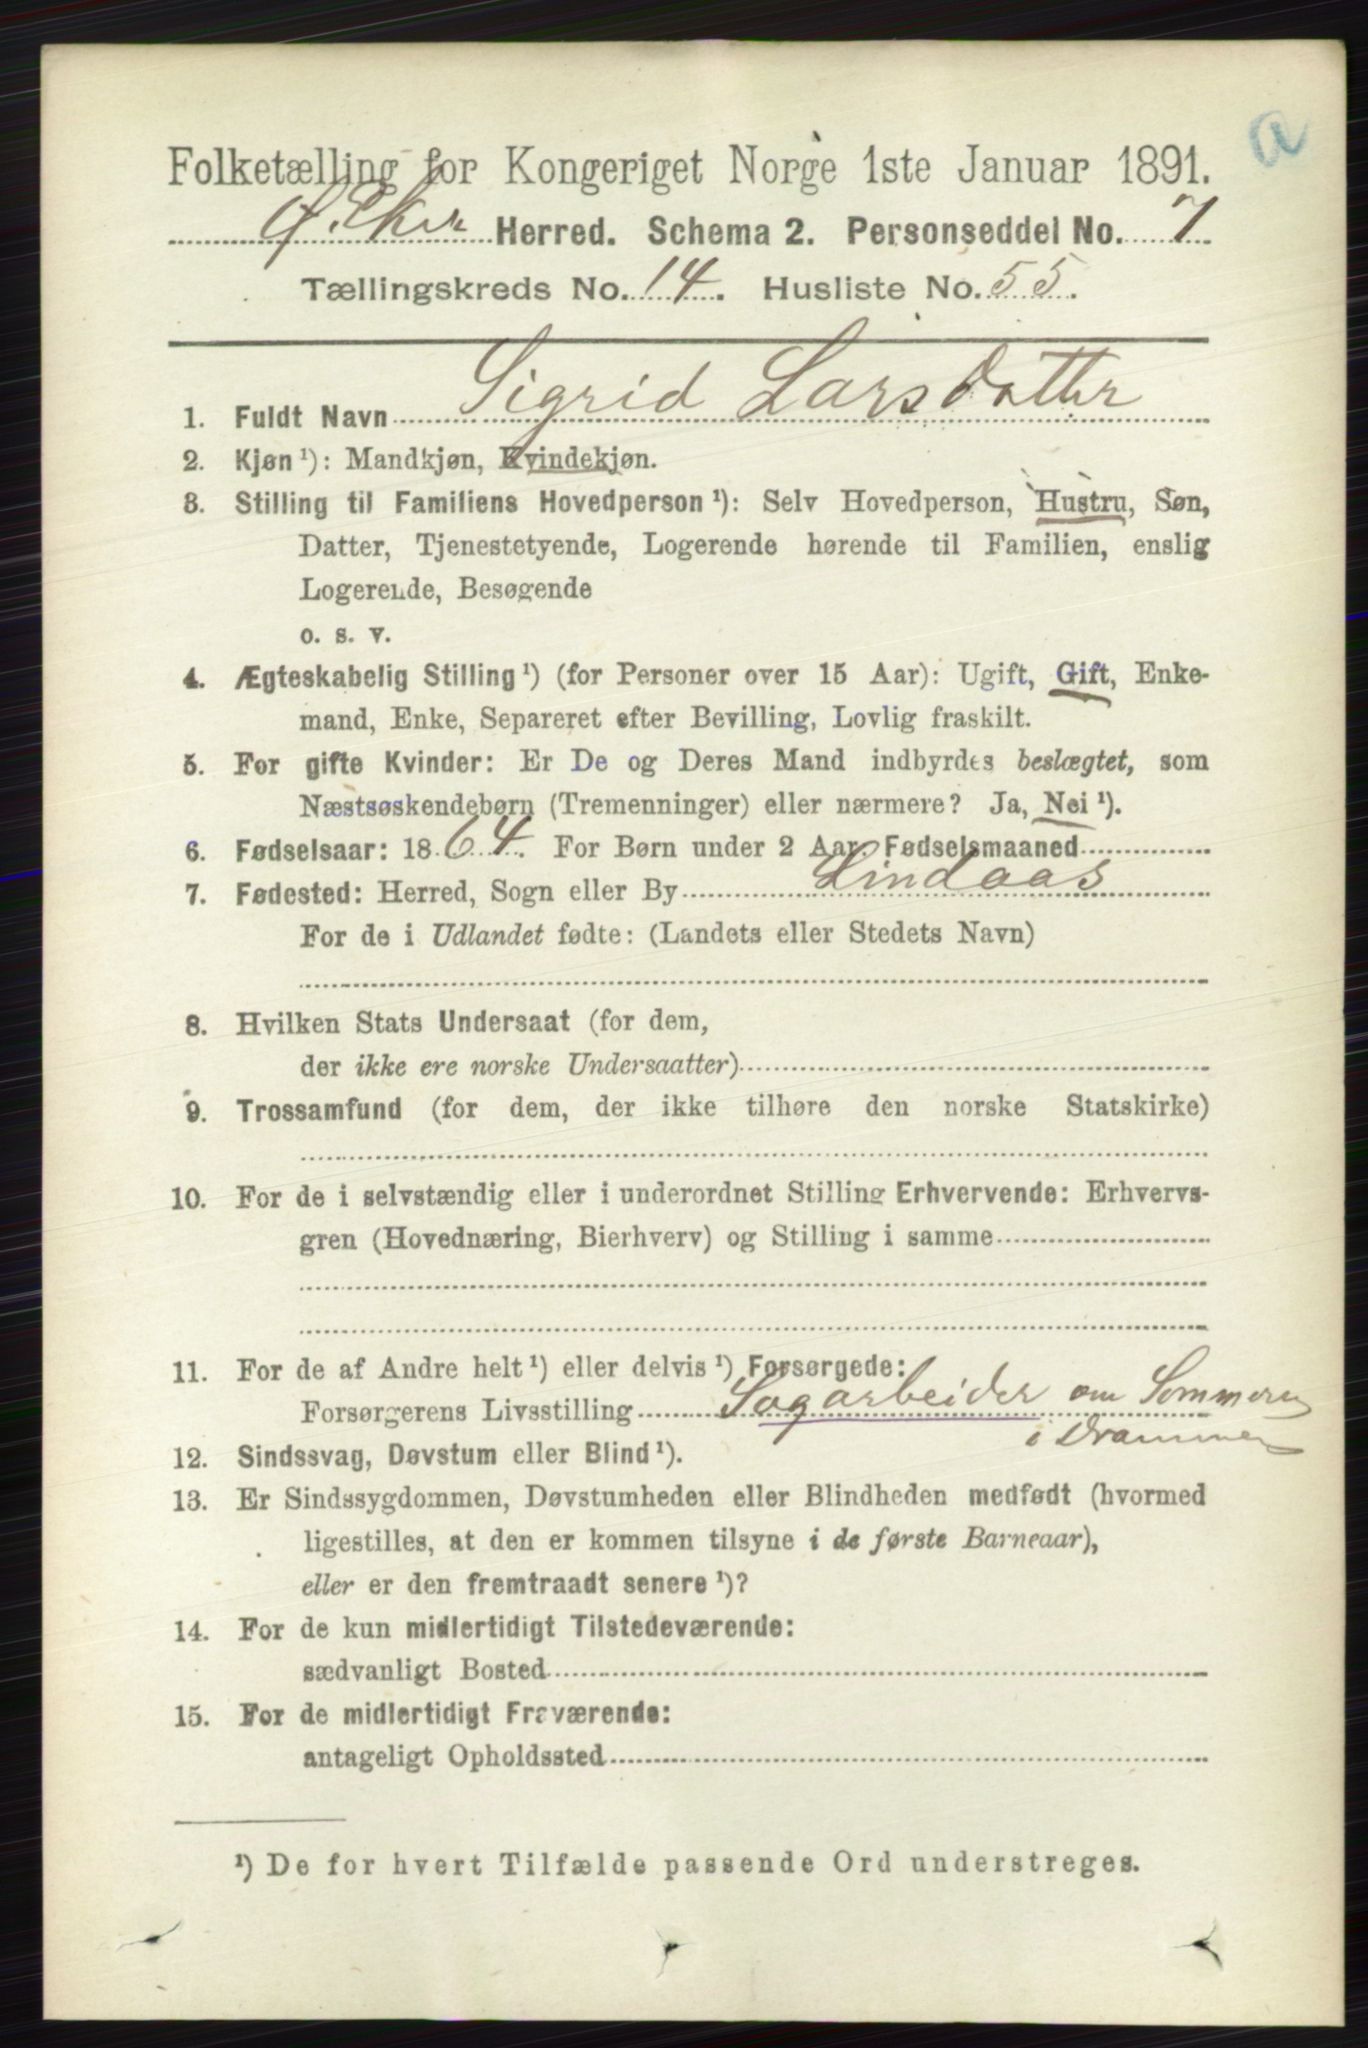 a
Folketælling for Kongeriget Norge 1ste Januar 1891.
Ø. Eker Herred. Schema 2. Personseddel No. 7
Tællingskreds No. 14. Husliste No. 55.
1. Fuldt Navn Sigrid Larsdatter
2. Kjøn ¹): Mandkjøn, Kvindekjøn.
3. Stilling til Familiens Hovedperson ¹): Selv Hovedperson, Hustru, Søn,
Datter, Tjenestetyende, Logerende hørende til Familien, enslig
Logerende, Besøgende
o. s. v.
4. Ægteskabelig Stilling ¹) (for Personer over 15 Aar): Ugift, Gift, Enke-
mand, Enke, Separeret efter Bevilling, Lovlig fraskilt.
5. For gifte Kvinder: Er De og Deres Mand indbyrdes beslægtet, som
Næstsøskendebørn (Tremenninger) eller nærmere? Ja, Nei ¹).
6. Fødselsaar: 1864. For Børn under 2 Aar, Fødselsmaaned
7. Fødested: Herred, Sogn eller By Lindaas
For de i Udlandet fødte: (Landets eller Stedets Navn)
8. Hvilken Stats Undersaat (for dem,
der ikke ere norske Undersaatter)
9. Trossamfund (for dem, der ikke tilhøre den norske Statskirke)
10. For de i selvstændig eller i underordnet Stilling Erhvervende: Erhvervs-
gren (Hovednæring, Bierhverv) og Stilling i samme
11. For de af Andre helt ¹) eller delvis ¹) Forsørgede:
Forsørgerens Livsstilling Sagarbeider om Sommeren
i Drammen
12. Sindssvag, Døvstum eller Blind ¹).
13. Er Sindssygdommen, Døvstumheden eller Blindheden medfødt (hvormed
ligestilles, at den er kommen tilsyne i de første Barneaar),
eller er den fremtraadt senere ¹)?
14. For de kun midlertidigt Tilstedeværende:
sædvanligt Bosted
15. For de midlertidigt Fraværende:
antageligt Opholdssted
¹) De for hvert Tilfælde passende Ord understreges.